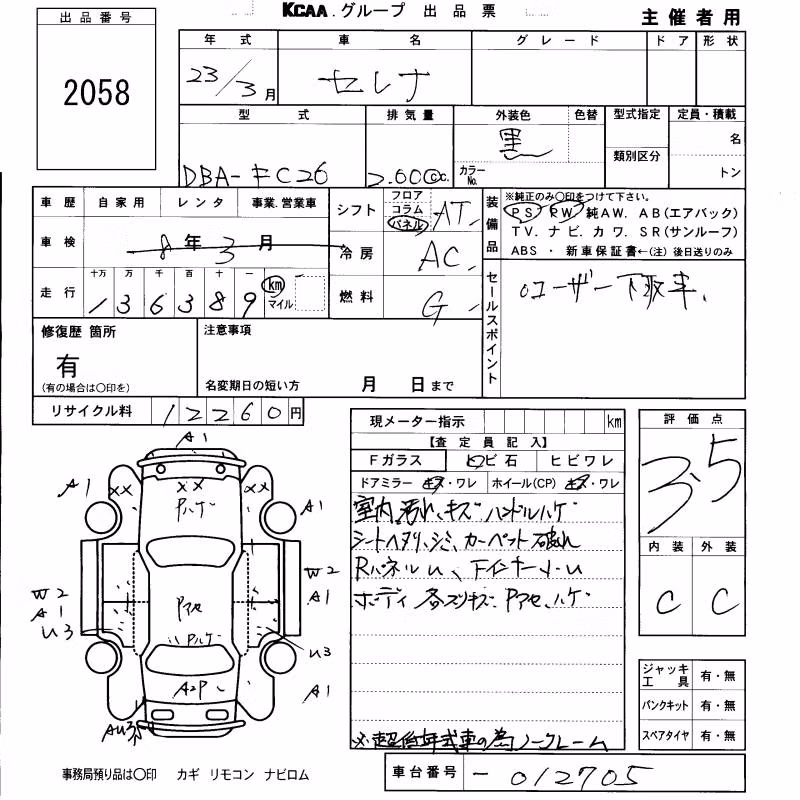 KCAA.グループ 出品票
主催者用
出品番号
2058
年式
23/3月
車名
セレナ
グレード
ドア
形状
型式
DBA-FC26
排気量
2.00 cc.
外装色
黒
色替
カラーNo.
型式指定
類別区分
定員・積載
名
トン
車歴 自家用 レンタ 事業.営業車
車検 8年3月
走行
十万 万 千 百 十 一
136389
km
マイル
シフト
フロア
コラム
パネル
AT
冷房 AC
燃料 G
装備品
※純正のみ○印をつけて下さい。
PS PW 純AW. AB(エアバック)
TV. ナビ. カワ. SR(サンルーフ)
ABS ・ 新車保証書←(注)後日送りのみ
セールスポイント
○ユーザー下取車、
修復歴 箇所
有
(有の場合は○印を)
注意事項
名変期日の短い方 月 日まで
リサイクル料 12260円
現メーター指示 km
【査定員記入】
Fガラス トビ石 ヒビワレ
ドアミラー キズ・ワレ ホイール(CP) キズ・ワレ
室内汚れ、キズ ハンドルハゲ
シートヘタリ、シミ、カーペット破れ
RパネルU、FインナーU
ボディ各スリキズ Pアセ、ハゲ
※超低年式車の為ノークレーム
評価点
3.5
内装 外装
C C
ジャッキ工具 有・無
パンクキット 有・無
スペアタイヤ 有・無
A1
A1
XX
XX
Pハゲ
XX
A1
W2
A1
U3
Pアセ
Pハゲ
W2
A1
U3
A2P
A1
AU3
事務局預り品は○印 カギ リモコン ナビロム
車台番号 -012705